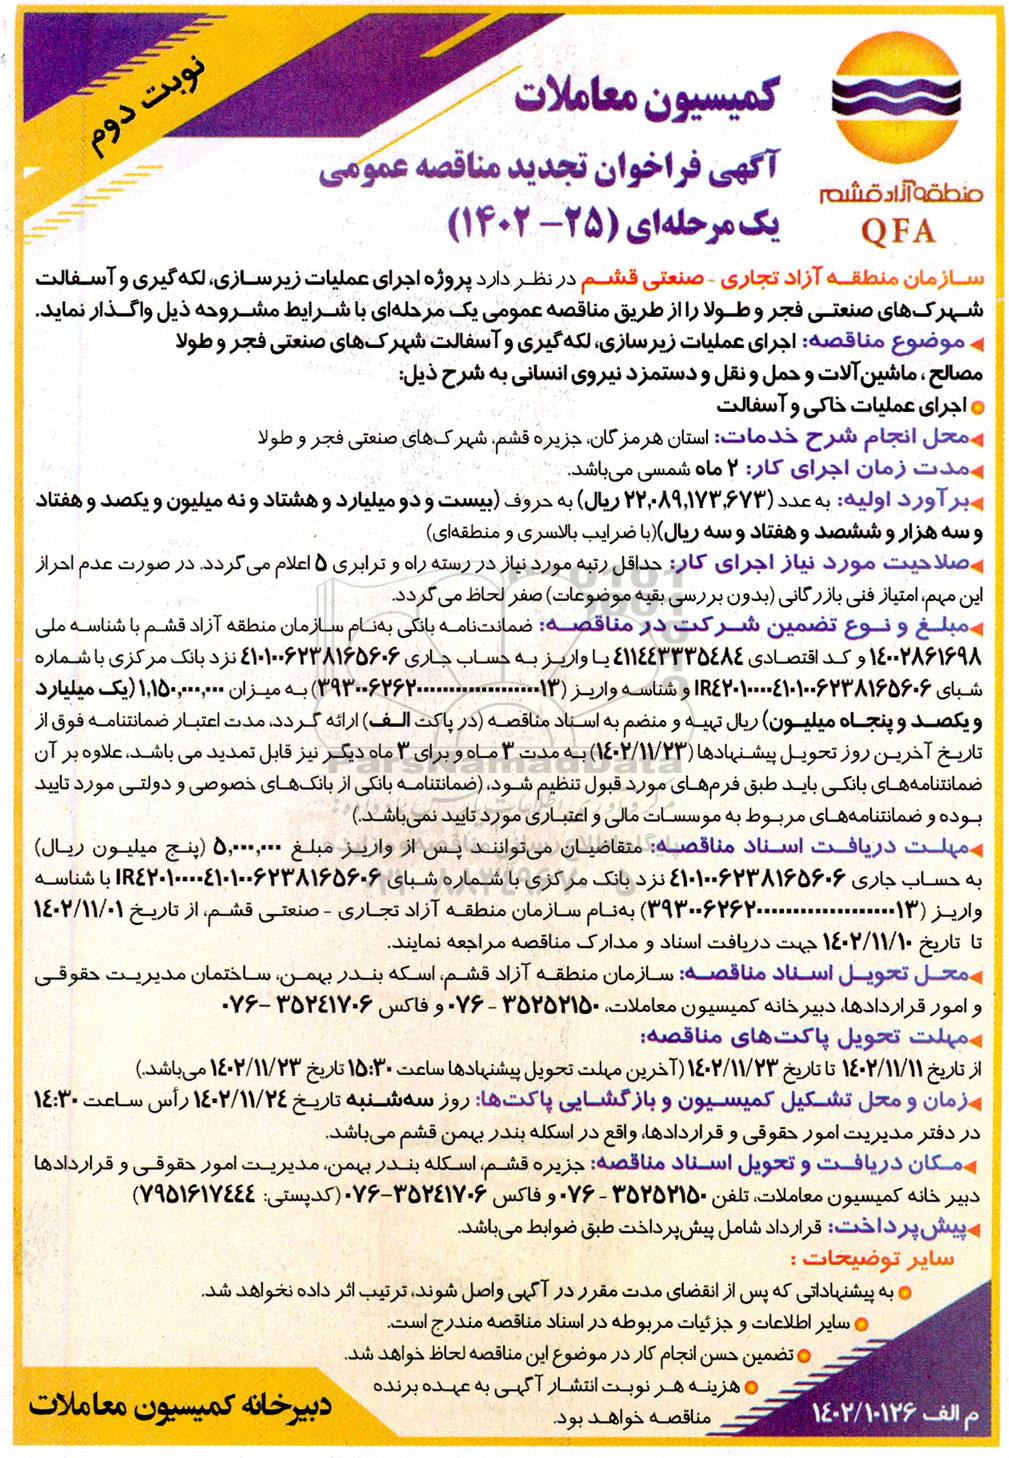 نوبت دوم
کمیسیون معاملات
آگهی فراخوان تجدید مناقصه عمومی
یک مرحله‌ای (۲۵- ۱۴۰۲)
منطقه آزاد قشم
QFA
سازمان منطقه آزاد تجاری - صنعتی قشم در نظر دارد پروژه اجرای عملیات زیرسازی، لکه‌گیری و آسفالت
شهرک‌های صنعتی فجر و طولا را از طریق مناقصه عمومی یک مرحله‌ای با شرایط مشروحه ذیل واگذار نماید.
موضوع مناقصه: اجرای عملیات زیرسازی، لکه‌گیری و آسفالت شهرک‌های صنعتی فجر و طولا
مصالح، ماشین‌آلات و حمل و نقل و دستمزد نیروی انسانی به شرح ذیل:
اجرای عملیات خاکی و آسفالت
محل انجام شرح خدمات: استان هرمزگان، جزیره قشم، شهرک‌های صنعتی فجر و طولا
مدت زمان اجرای کار: ۲ ماه شمسی می‌باشد.
برآورد اولیه: به عدد (۲۲,۰۸۹,۱۷۳,۶۷۳ ریال) به حروف (بیست و دو میلیارد و هشتاد و نه میلیون و یکصد و هفتاد
و سه هزار و ششصد و هفتاد و سه ریال)(با ضرایب بالاسری و منطقه‌ای)
صلاحیت مورد نیاز اجرای کار: حداقل رتبه مورد نیاز در رسته راه و ترابری ۵ اعلام می‌گردد. در صورت عدم احراز
این مهم، امتیاز فنی بازرگانی (بدون بررسی بقیه موضوعات) صفر لحاظ می‌گردد.
مبلغ و نوع تضمین شرکت در مناقصه: ضمانت‌نامه بانکی به‌نام سازمان منطقه آزاد قشم با شناسه ملی
۱۴۰۰۲۸۶۱۶۹۸ و کد اقتصادی ۴۱۱۴۴۳۳۳۵۴۸۴ یا واریز به حساب جاری ۴۱۰۱۰۰۶۲۳۸۱۶۵۶۰۶ نزد بانک مرکزی با شماره
شبای IR۴۲۰۱۰۰۰۰۴۱۰۱۰۰۶۲۳۸۱۶۵۶۰۶ و شناسه واریز به میزان ۱,۱۵۰,۰۰۰,۰۰۰ (یک میلیارد
و یکصد و پنجاه میلیون) ریال تهیه و منضم به اسناد مناقصه (در پاکت الف) ارائه گردد، مدت اعتبار ضمانتنامه فوق از
تاریخ آخرین روز تحویل پیشنهادها (۱۴۰۲/۱۱/۲۳) به مدت ۳ ماه و برای ۳ ماه دیگر نیز قابل تمدید می باشد، علاوه بر آن
ضمانتنامه‌های بانکی باید طبق فرم‌های مورد قبول تنظیم شود، (ضمانتنامه بانکی از بانک‌های خصوصی و دولتی مورد تایید
بوده و ضمانتنامه‌های مربوط به موسسات مالی و اعتباری مورد تایید نمی‌باشد.)
مهلت دریافت اسناد مناقصه: متقاضیان می‌توانند پس از واریز مبلغ ۵,۰۰۰,۰۰۰ (پنج میلیون ریال)
به حساب جاری ۴۱۰۱۰۰۶۲۳۸۱۶۵۶۰۶ نزد بانک مرکزی با شماره شبای IR۴۲۰۱۰۰۰۰۴۱۰۱۰۰۶۲۳۸۱۶۵۶۰۶ با شناسه
واریز به‌نام سازمان منطقه آزاد تجاری - صنعتی قشم، از تاریخ ۱۴۰۲/۱۱/۰۱
تا تاریخ ۱۴۰۲/۱۱/۱۰ جهت دریافت اسناد و مدارک مناقصه مراجعه نمایند.
محل تحویل اسناد مناقصه: سازمان منطقه آزاد قشم، اسکه بندر بهمن، ساختمان مدیریت حقوقی
و امور قراردادها، دبیرخانه کمیسیون معاملات، ۳۵۲۵۲۱۵۰ - ۰۷۶ و فاکس ۳۵۲۴۱۷۰۶ -۰۷۶
مهلت تحویل پاکت‌های مناقصه:
از تاریخ ۱۴۰۲/۱۱/۱۱ تا تاریخ ۱۴۰۲/۱۱/۲۳ (آخرین مهلت تحویل پیشنهادها ساعت ۱۵:۳۰ تاریخ ۱۴۰۲/۱۱/۲۳ می‌باشد.)
زمان و محل تشکیل کمیسیون و بازگشایی پاکت‌ها: روز سه‌شنبه تاریخ ۱۴۰۲/۱۱/۲۴ رأس ساعت ۱۴:۳۰
در دفتر مدیریت امور حقوقی و قراردادها، واقع در اسکله بندر بهمن قشم می‌باشد.
مکان دریافت و تحویل اسناد مناقصه: جزیره قشم، اسکله بندر بهمن، مدیریت امور حقوقی و قراردادها
دبیر خانه کمیسیون معاملات، تلفن ۳۵۲۵۲۱۵۰ - ۰۷۶ و فاکس ۳۵۲۴۱۷۰۶-۰۷۶ (کدپستی: ۷۹۵۱۶۱۷۴۴۴)
پیش‌پرداخت: قرارداد شامل پیش‌پرداخت طبق ضوابط می‌باشد.
سایر توضیحات :
به پیشنهاداتی که پس از انقضای مدت مقرر در آگهی واصل شوند، ترتیب اثر داده نخواهد شد.
سایر اطلاعات و جزئیات مربوطه در اسناد مناقصه مندرج است.
تضمین حسن انجام کار در موضوع این مناقصه لحاظ خواهد شد.
هزینه هر نوبت انتشار آگهی به عهده برنده
مناقصه خواهد بود.
م الف ۱۴۰۲/۱۰۱۲۶
دبیرخانه کمیسیون معاملات
ParsNamadData